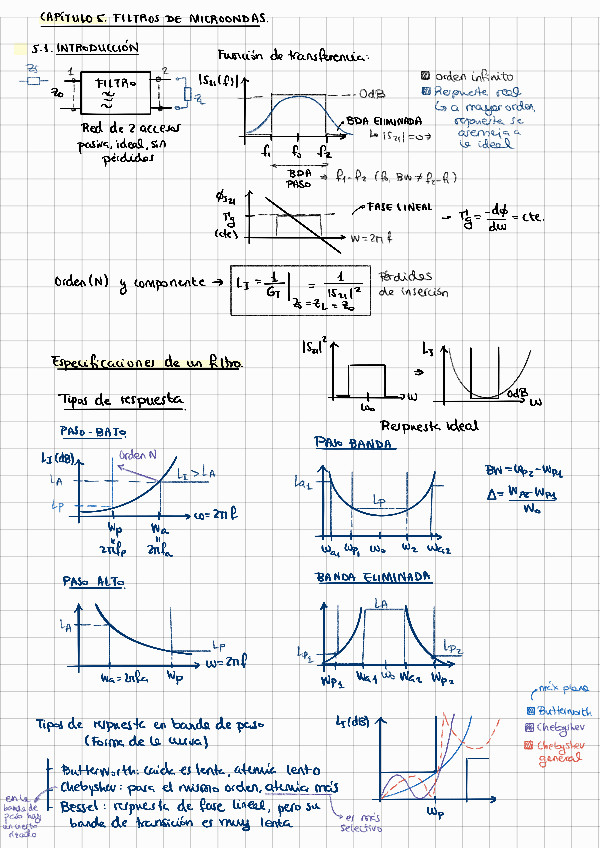 CAPÍTULO 5. FILTROS DE MICROONDAS.
5.1. INTRODUCCIÓN
Zs
1
Z0
FILTRO
2
ZL
Red de 2 accesos
pasiva, ideal, sin
pérdidas
Función de transferencia:
|S21(f)|
0dB
BDA ELIMINADA
↳ |S21| = 0
f1 f0 f2
BDA
PASO
→ f1-f2 (f0, BW ≠ f2-f1)
orden infinito
Respuesta real
↳ a mayor orden,
respuesta se
asemeja a
la ideal
ϕS21
τg
(cte)
FASE LINEAL
w=2πf
→ τg = -dϕ/dw = cte.
Orden (N) y componente → LI = 1/GT | Zs=ZL=Z0 = 1/|S21|²
Pérdidas
de inserción
Especificaciones de un filtro.
|S21|²
w0
w
⇒
LI
0dB
w
Respuesta ideal
Tipos de respuesta
PASO-BAJO
LI (dB)
Orden N
LI > LA
LA
LP
wp wa w=2πf
2πfp 2πfa
PASO BANDA
La1
LP
wa1 wp1 w0 w2 wa2
BW = wp2-wp1
Δ = wp2-wp1/w0
PASO ALTO
LA
LP
wa=2πfa wp w=2πf
BANDA ELIMINADA
LA
LP1
LP2
wp1 wa1 w0 wa2 wp2
Tipos de respuesta en banda de paso
(Forma de la curva)
Butterworth: caída es lenta, atenúa lento
Chebyshev: para el mismo orden, atenúa más
Bessel: respuesta de fase lineal, pero su
banda de transición es muy lenta
en la
banda de
paso hay
un cierto
rizado
el más
selectivo
LI (dB)
wp
máx plana
Butterworth
Chebyshev
Chebyshev
general